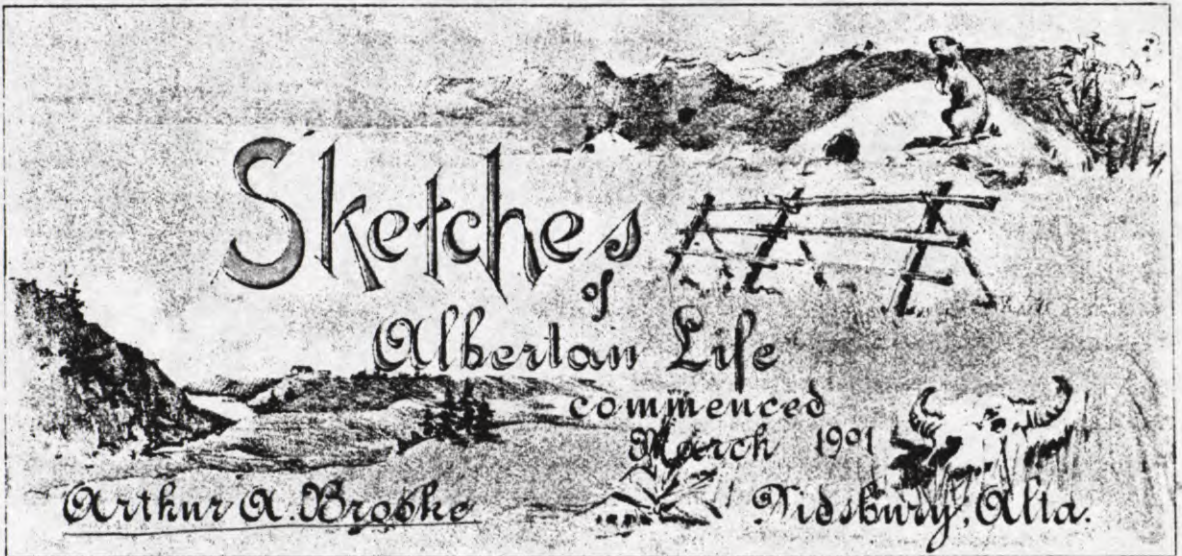 Sketches
of
Albertan Life
commenced
March 1901
Arthur A. Brooke
Didsbury, Alta.